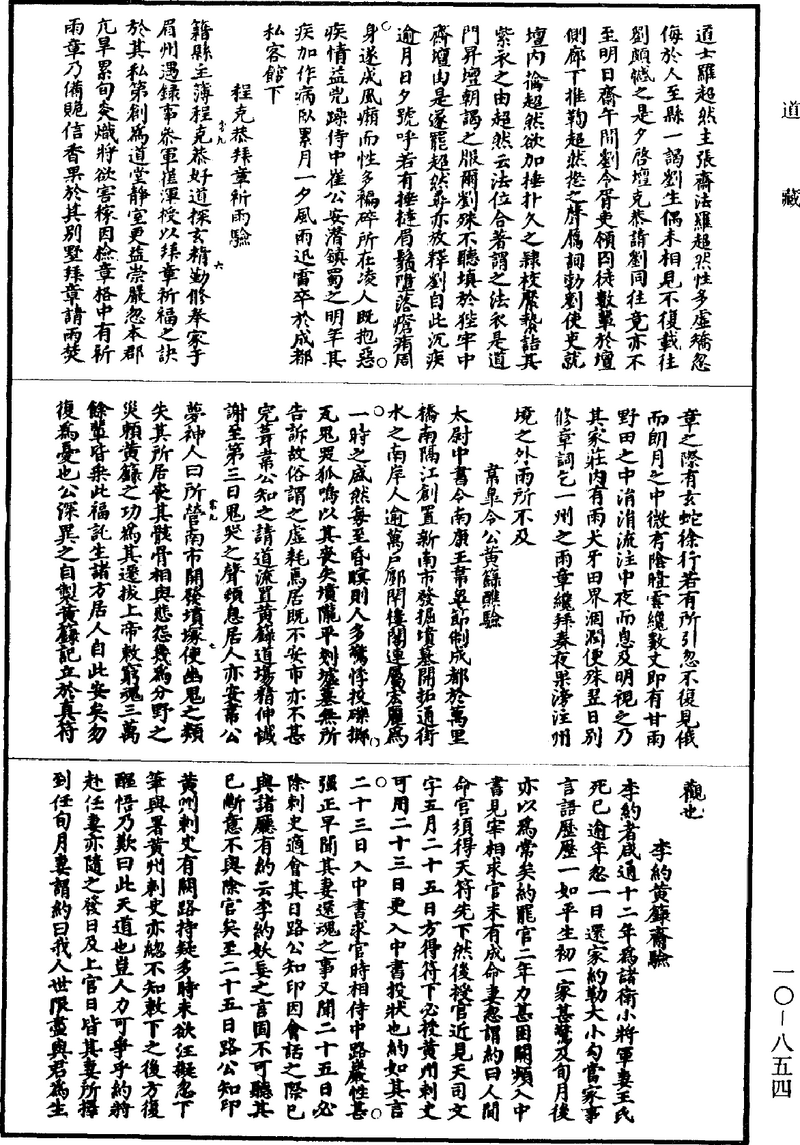 道士羅超然主張齋法羅超然性多虛矯忽
侮於人至縣一謁劉生偶未相見不復載往
劉頗憾之是夕啓壇克恭請劉同往竟亦不
至明日齋午間劉令胥吏領囚徒數輩於壇
側廊下推鞫超然怒之聲厲詞勃劉使吏就
壇內擒超然欲加捶扑久之隸校縻縶詰其
紫衣之由超然云法位合著謂之法衣是道
門昇壇朝謁之服爾劉殊不聽填於狴牢中
齋壇由是遂罷超然尋亦放釋劉自此沉疾
逾月日夕號呼若有捶撻眉鬚墮落瘡痏周
身遂成風癩而性多褊碎所在凌人既抱惡
疾情益兇躁侍中崔公安潛鎮蜀之明年其
疾加作病臥累月一夕風雨迅雷卒於成都
私客館下
程克恭拜章祈雨驗
籍縣主簿程克恭好道探玄精勤修奉家于
眉州遇錄事參軍崔渾授以拜章祈福之訣
於其私第創為道堂靜室更益崇嚴忽本郡
亢旱累旬炎熾將欲害稼因檢章格中有祈
雨章乃備賝信香果於其別墅拜章請雨焚
章之際有玄蛇徐行若有所引忽不復見俄
而朗月之中微有陰曀雲纔數丈即有甘雨
野田之中涓涓流注中夜而息及明視之乃
其家莊內有雨犬牙田界涸潤便殊翌日別
修章詞乞一州之雨章纔拜奏夜果滂注州
境之外雨所不及
韋皐令公黃籙醮驗
太尉中書令南康王韋皐節制成都於萬里
橋南隔江創置新南市發掘墳墓開拓通街
水之南岸人逾萬戶鄽閈樓閣連屬宏麗為
一時之盛然每至昏暝則人多驚悸投礫擲
瓦鬼哭狐鳴以其喪失墳隴平剗墟墓無所
告訴故俗謂之虛耗焉居既不安市亦不甚
完葺韋公知之請道流置黃籙道場精伸懺
謝至第三日鬼哭之聲頓息居人亦安韋公
夢神人曰所營南市開發墳塚使幽鬼之類
失其所居喪其骸骨相與悲怨幾為分野之
災賴黃籙之功為其遷拔上帝敕窮魂三萬
餘輩皆乘此福託生諸方居人自此安矣勿
復為憂也公深異之自製黃籙記立於真符
觀也
李約黃籙齋驗
李約者咸通十二年為諸衛小將軍妻王氏
死已逾年忽一日還家約勒大小勾當家事
言語歷歷一如平生初一家甚驚及旬月後
亦以為常矣約罷官二年力甚困闕頻入中
書見宰相求官未有成命妻忽謂約曰人間
命官須得天符先下然後授官近見天司文
字五月二十五日方得符下必授黃州刺史
可用二十三日更入中書投狀也約如其言
二十三日入中書求官時相侍中路巖性甚
強正早聞其妻還魂之事又聞二十五日必
除刺史適會其日路公知印因會話之際已
與諸廳有約云李約妖妄之言固不可聽其
已斷意不與除官矣至二十五日路公知印
黃州刺史有闕路持疑多時未欲注擬忽下
筆與署黃州刺史亦總不知敕下之後方復
醒悟乃歎曰此天道也豈人力可爭乎約將
赴任妻亦隨之發日及上官日皆其妻所擇
到任旬月妻謂約曰我人世限盡與君為生
道藏
一〇—八五四